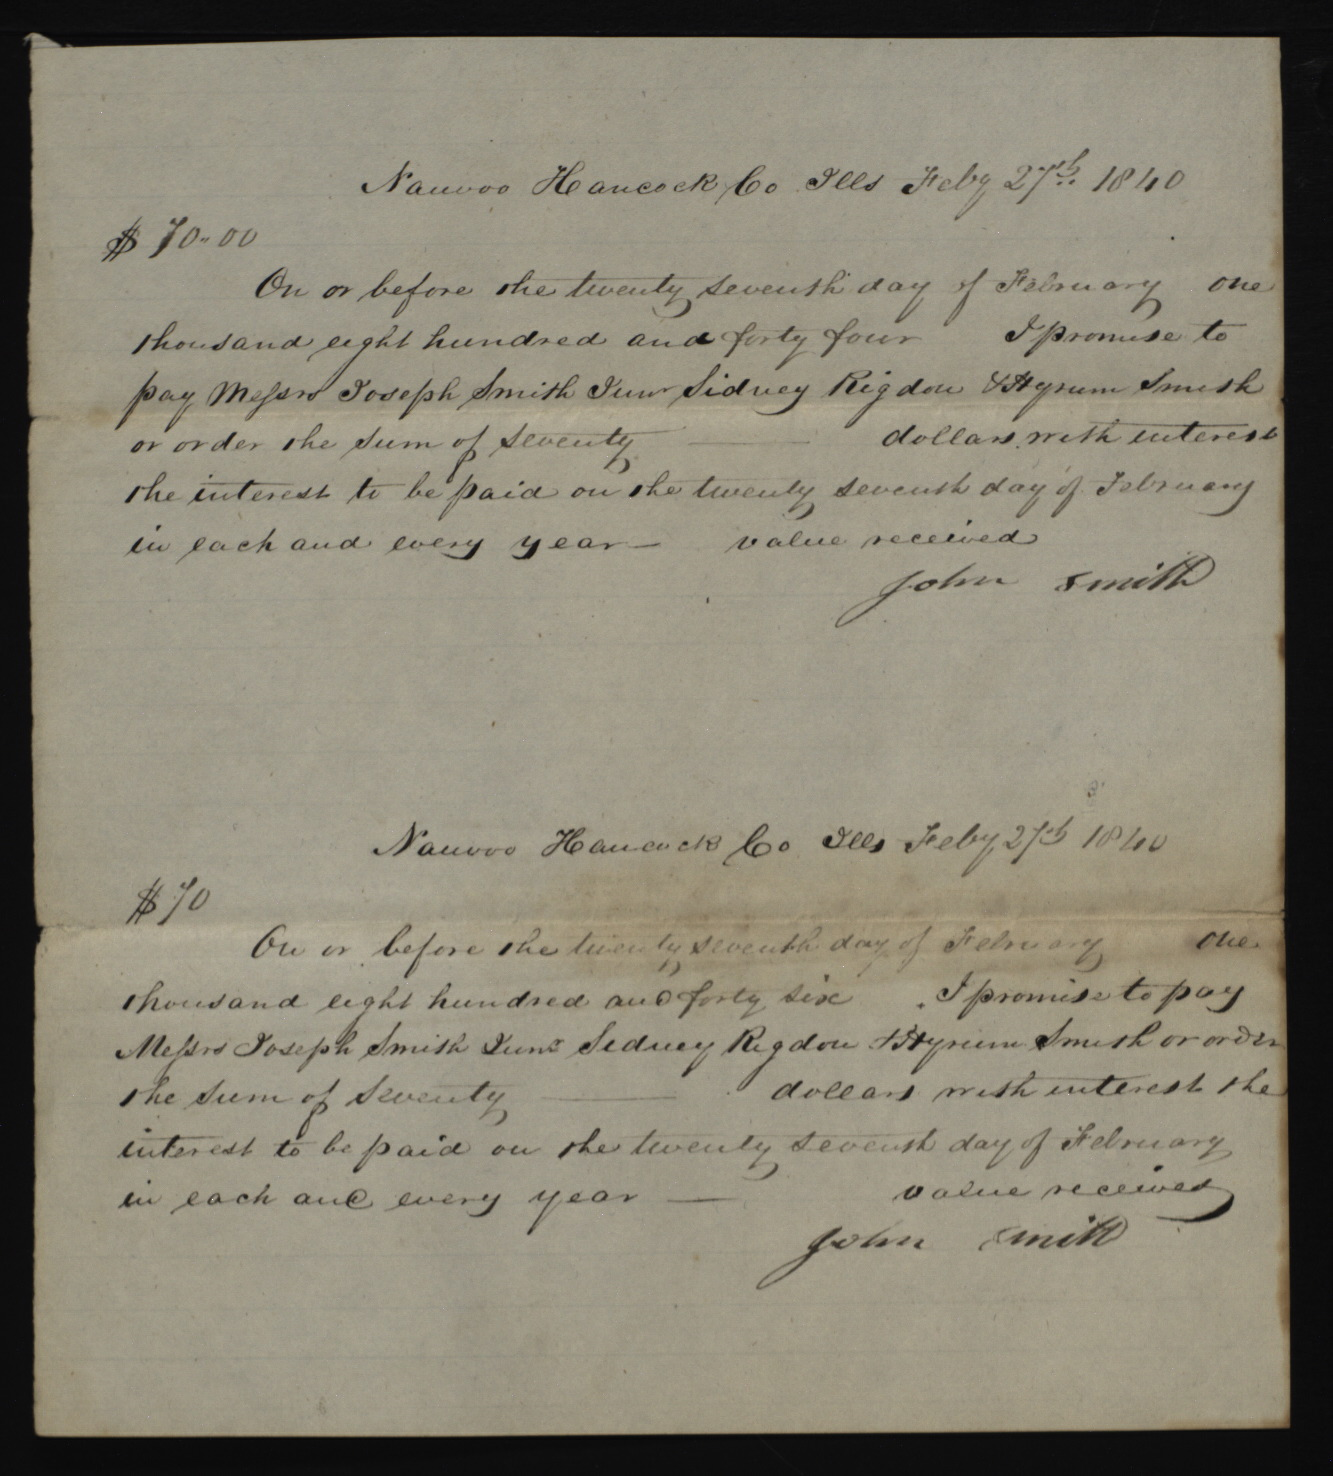 Nauvoo Hancock Co Ills Feby 27th 1840
$70-00
On or before the twenty seventh day of February one
thousand eight hundred and forty four I promise to
pay Messrs Joseph Smith Junr Sidney Rigdon & Hyrum Smith
or order the sum of seventy — dollars with interest
the interest to be paid on the twenty seventh day of February
in each and every year — value received
John Smith
Nauvoo Hancock Co Ills Feby 27th 1840
$70
On or before the twenty seventh day of February one
thousand eight hundred and forty six I promise to pay
Messrs Joseph Smith Junr Sidney Rigdon & Hyrum Smith or order
the sum of seventy — dollars with interest the
interest to be paid on the twenty seventh day of February
in each and every year — value received
John Smith